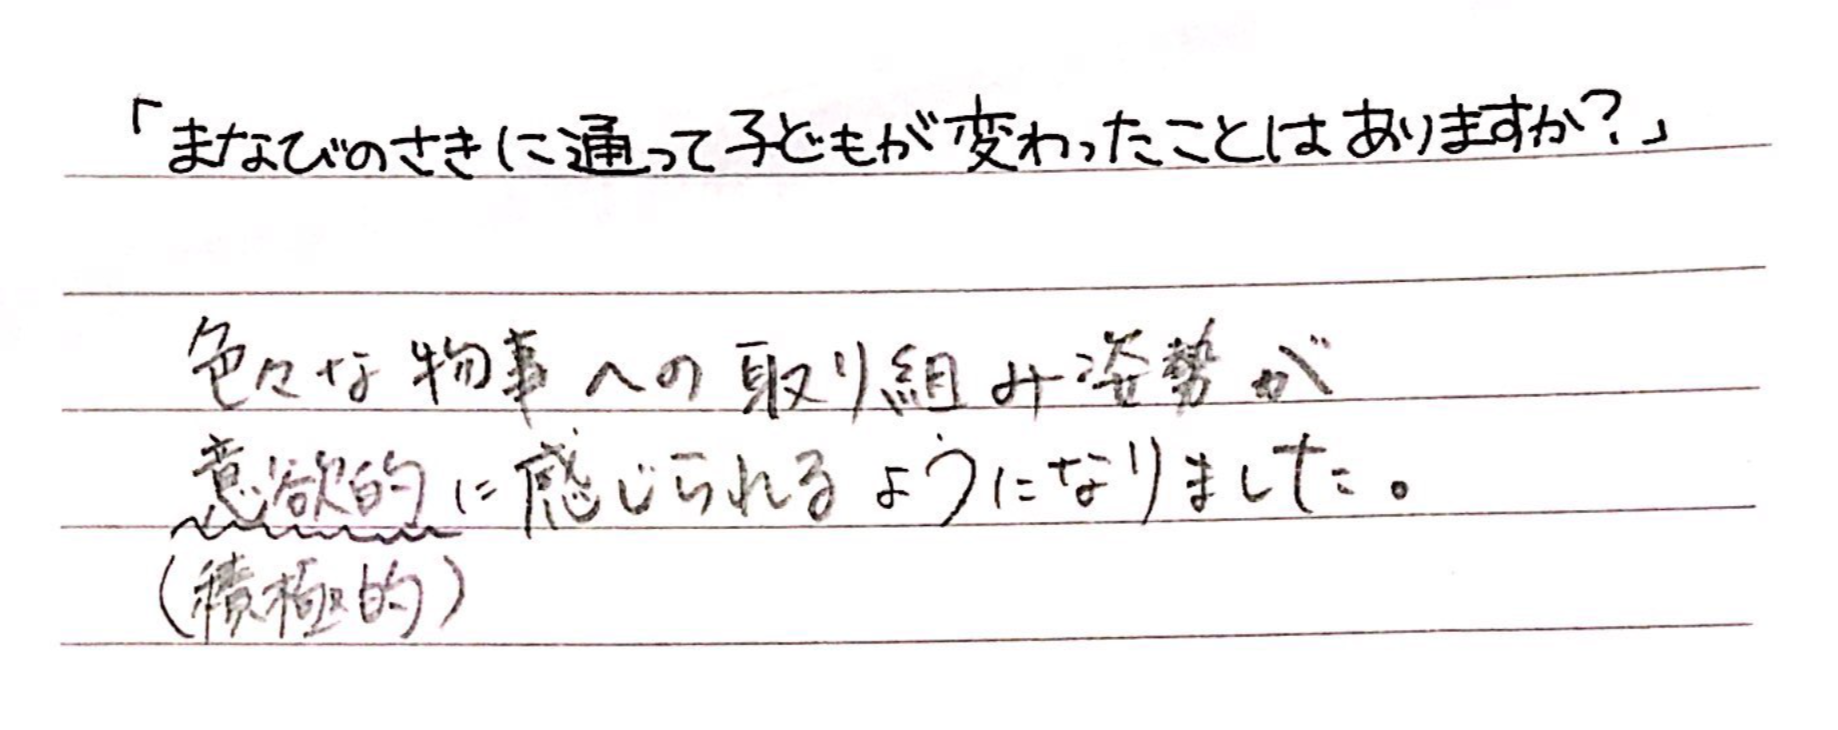 「まなびのさきに通って子どもが変わったことはありますか?」
色々な物事への取り組み姿勢が
意欲的に感じられるようになりました。
(積極的)